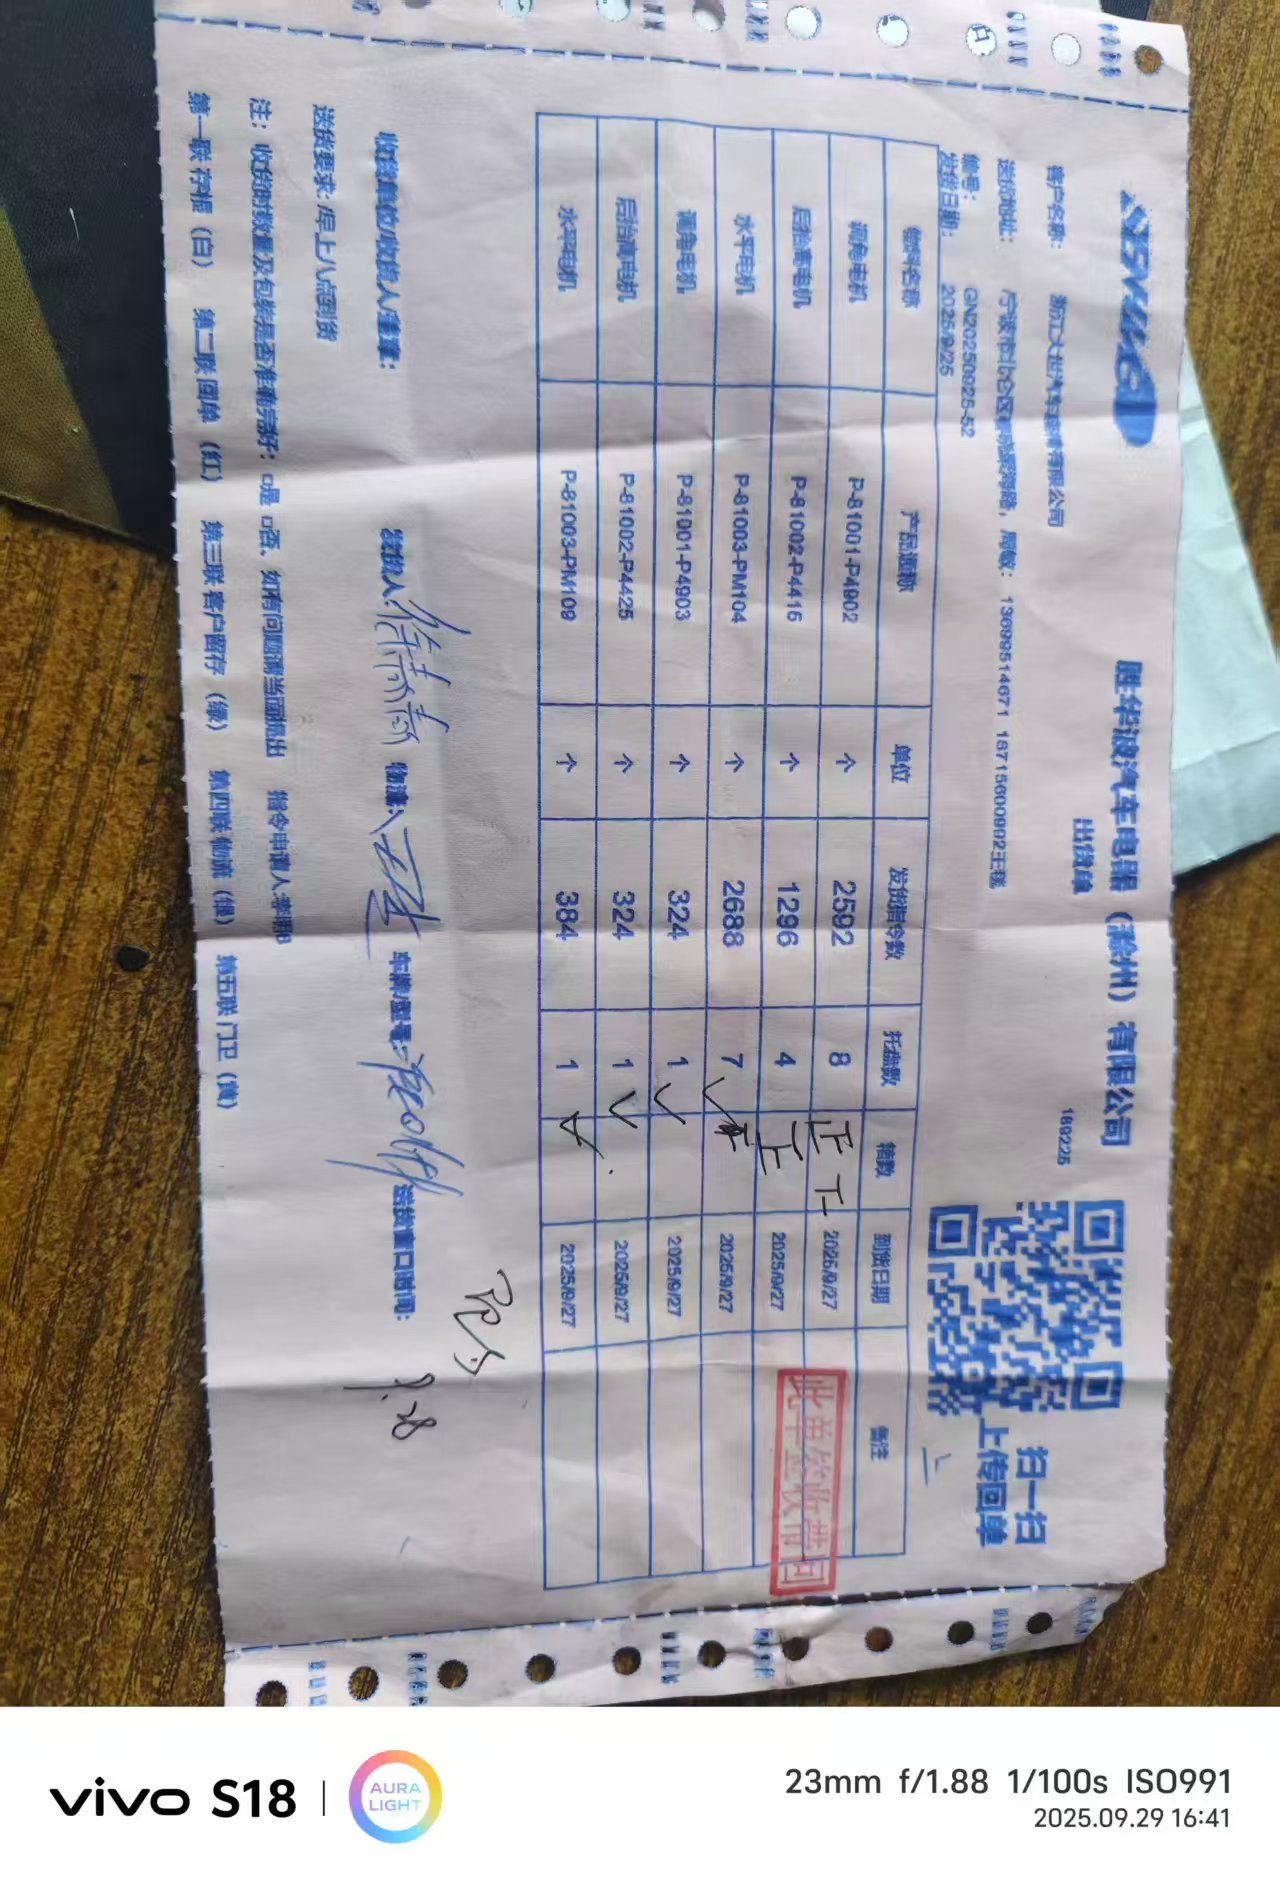 胜华波汽车电器（滁州）有限公司
出货单
189225
扫一扫
上传回单
客户名称：
送货地址： 周敏： 13699514671 18715600902王毯
编号： GN20250925-52
发货日期： 2025/9/25
物料名称 产品通称 单位 发货指令数 托盘数 箱数 到货日期 备注
调角电机 P-81001-P4902 个 2592 8 正下 2025/9/27
后抬高电机 P-81002-P4416 个 1296 4 2025/9/27
水平电机 P-81003-PM104 个 2688 7 2025/9/27
调角电机 P-81001-P4903 个 324 1 2025/9/27
后抬高电机 P-81002-P4425 个 324 1 2025/9/27
水平电机 P-81003-PM109 个 384 1 2025/9/27
此单签收带回
收货单位/收货人/签章： 发货人： 物流： 车牌/型号： 送货窗口时间：
9.28
送货要求：早上八点到货
注：收货时数量及包装是否准确完好：□是 □否、如有问题请当面提出 指令申请人:李明B
第一联 存根（白） 第二联 回单（红） 第三联 客户留存（绿） 第四联 物流（绿） 第五联 门卫（黄）
vivo S18
AURA
LIGHT
23mm f/1.88 1/100s ISO991
2025.09.29 16:41